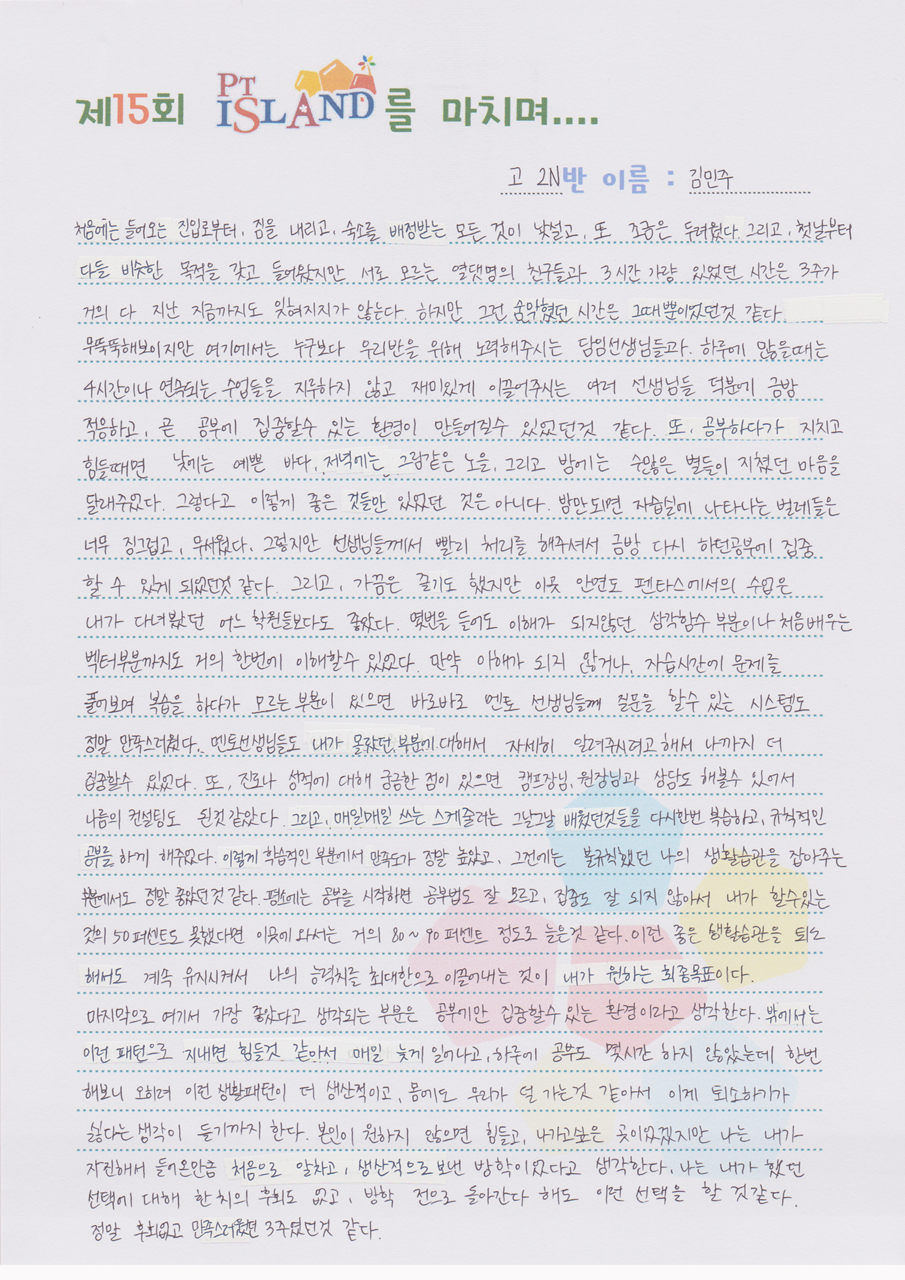 제15회 PT ISLAND를 마치며....
고 2N반 이름 : 김민주
처음에는 들어오는 진입로부터, 짐을 내리고, 숙소를 배정받는 모든 것이 낯설고, 또 조금은 두려웠다. 그리고, 첫날부터
다들 비슷한 목적을 갖고 들어왔지만 서로 모르는 열댓명의 친구들과 3시간 가량 있었던 시간은 3주가
거의 다 지난 지금까지도 잊혀지지가 않는다. 하지만 그런 숨막혔던 시간은 그때뿐이었던것 같다.
무뚝뚝해보이지만 여기에서는 누구보다 우리반을 위해 노력해주시는 담임선생님들과, 하루에 많을때는
4시간이나 연속되는 수업들을 지루하지 않고 재미있게 이끌어주시는 여러 선생님들 덕분에 금방
적응하고, 곧 공부에 집중할수 있는 환경이 만들어질수 있었던것 같다. 또, 공부하다가 지치고
힘들때면 낮에는 예쁜 바다, 저녁에는 그림같은 노을, 그리고 밤에는 수많은 별들이 지쳤던 마음을
달래주었다. 그렇다고 이렇게 좋은 것들만 있었던 것은 아니다. 밤만되면 자습실에 나타나는 벌레들은
너무 징그럽고, 무서웠다. 그렇지만 선생님들께서 빨리 처리를 해주셔서 금방 다시 하던공부에 집중
할 수 있게 되었던것 같다. 그리고, 가끔은 졸기도 했지만 이곳 안면도 펜타스에서의 수업은
내가 다녀봤던 어느 학원들보다도 좋았다. 몇번을 들어도 이해가 되지않던 삼각함수 부분이나 처음배우는
벡터부분까지도 거의 한번에 이해할수 있었다. 만약 이해가 되지 않거나, 자습시간에 문제를
풀어보며 복습을 하다가 모르는 부분이 있으면 바로바로 멘토 선생님들께 질문을 할수 있는 시스템도
정말 만족스러웠다. 멘토선생님들도 내가 몰랐던 부분에 대해서 자세히 알려주시려고 해서 나까지 더
집중할수 있었다. 또, 진로나 성적에 대해 궁금한 점이 있으면 캠프장님, 원장님과 상담도 해볼수 있어서
나름의 컨설팅도 된것 같았다. 그리고, 매일매일 쓰는 스케줄러는 그날그날 배웠던것들을 다시한번 복습하고, 규칙적인
공부를 하게 해주었다. 이렇게 학습적인 부분에서 만족도가 정말 높았고, 그전에는 불규칙했던 나의 생활습관을 잡아주는
부분에서도 정말 좋았던것 같다. 평소에는 공부를 시작하면 공부법도 잘 모르고, 집중도 잘 되지 않아서 내가 할수있는
것의 50퍼센트도 못했다면 이곳에 와서는 거의 80~90퍼센트 정도로 늘은것 같다. 이런 좋은 생활습관을 퇴소
해서도 계속 유지시켜서 나의 능력치를 최대한으로 이끌어내는 것이 내가 원하는 최종목표이다.
마지막으로 여기서 가장 좋았다고 생각되는 부분은 공부에만 집중할수 있는 환경이라고 생각한다. 밖에서는
이런 패턴으로 지내면 힘들것 같아서 매일 늦게 일어나고, 하루에 공부도 몇시간 하지 않았는데 한번
해보니 오히려 이런 생활패턴이 더 생산적이고, 몸에도 무리가 덜 가는것 같아서 이제 퇴소하기가
싫다는 생각이 들기까지 한다. 본인이 원하지 않으면 힘들고, 나가고싶은 곳이었겠지만 나는 내가
자진해서 들어온만큼 처음으로 알차고, 생산적으로 보낸 방학이었다고 생각한다. 나는 내가 했던
선택에 대해 한 치의 후회도 없고, 방학 전으로 돌아간다 해도 이런 선택을 할 것같다.
정말 후회없고 만족스러웠던 3주였던것 같다.